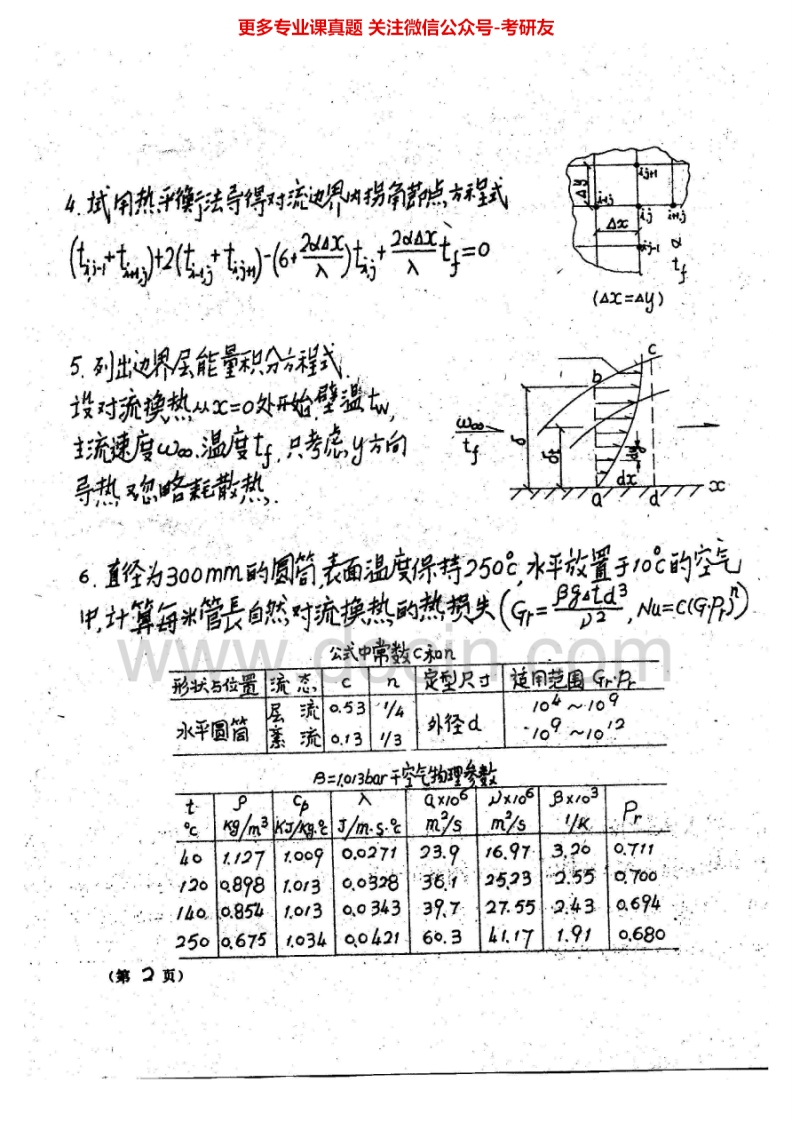 更多专业课真题 关注微信公众号-考研友
4. 试用热平衡法导得对流边界内拐角节点方程式
(t_{i,j-1}+t_{i+1,j})+2(t_{i-1,j}+t_{i,j+1})-(6+\frac{2αΔx}{λ})t_{i,j}+\frac{2αΔx}{λ}t_f=0
i,j+1
Δy
i+j
i,j
i+1,j
Δx
i,j-1
α
t_f
(Δx=Δy)
5. 列出边界层能量积分方程式.
设对流换热从x=0处开始,壁温t_w,
主流速度ω∞、温度t_f,只考虑y方向
导热,忽略耗散热.
c
b
ω∞
t_f
δ
δ_t
dy
dx
a
d
x
6. 直径为300mm的圆筒,表面温度保持250℃,水平放置于10℃的空气
中,计算每米管長自然对流换热的热损失(Gr=\frac{βgΔtd³}{ν²}, Nu=C(Gr·Pr)^n)
www.docin.com
公式中常数C和n
形状与位置 流态 C n 定型尺寸 适用范围 Gr·Pr
水平圆筒 层流 0.53 1/4 外径d 10⁴~10⁹
紊流 0.13 1/3 10⁹~10¹²
B=1.013bar干空气物理参数
t ρ Cp λ a×10⁶ ν×10⁶ β×10³ Pr
℃ kg/m³ KJ/kg.℃ J/m·s·℃ m²/s m²/s 1/K
40 1.127 1.009 0.0271 23.9 16.97 3.20 0.711
120 0.898 1.013 0.0328 36.1 25.23 2.55 0.700
140 0.854 1.013 0.0343 39.7 27.55 2.43 0.694
250 0.675 1.034 0.0421 60.3 41.17 1.91 0.680
(第 2 页)